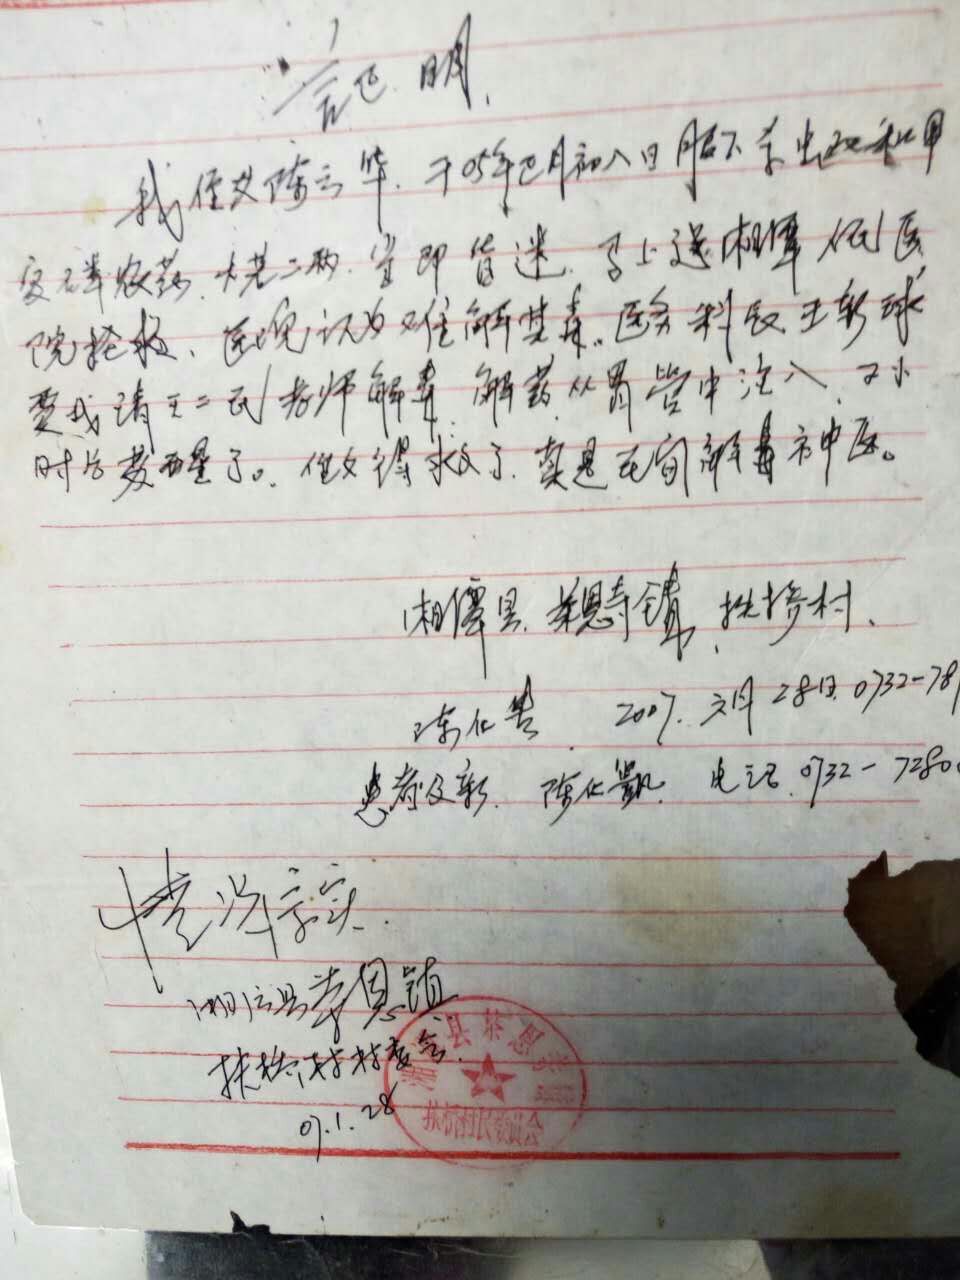 证明
我侄女陈云华.于05年巴月初八日服下杀虫双和甲
安磷农药.大芒二两.当即昏迷.马上送湘潭人民医
院抢救、医院认为难解其毒。医务科长王新球
要我请王二民老师解毒.解药从胃管中注入、2小
时后发醒了。侄女得救了.真是民间解毒神医。
湘潭县.茶恩寺镇、扶桥村、
陈仕贵 2007.六月28日.0732-78
患者父亲.陈仕凯.电话.0732-7280
情况属实.
湘潭县茶恩镇
扶桥村村委会.
07.1.28
县茶恩寺
扶桥村村民委员会